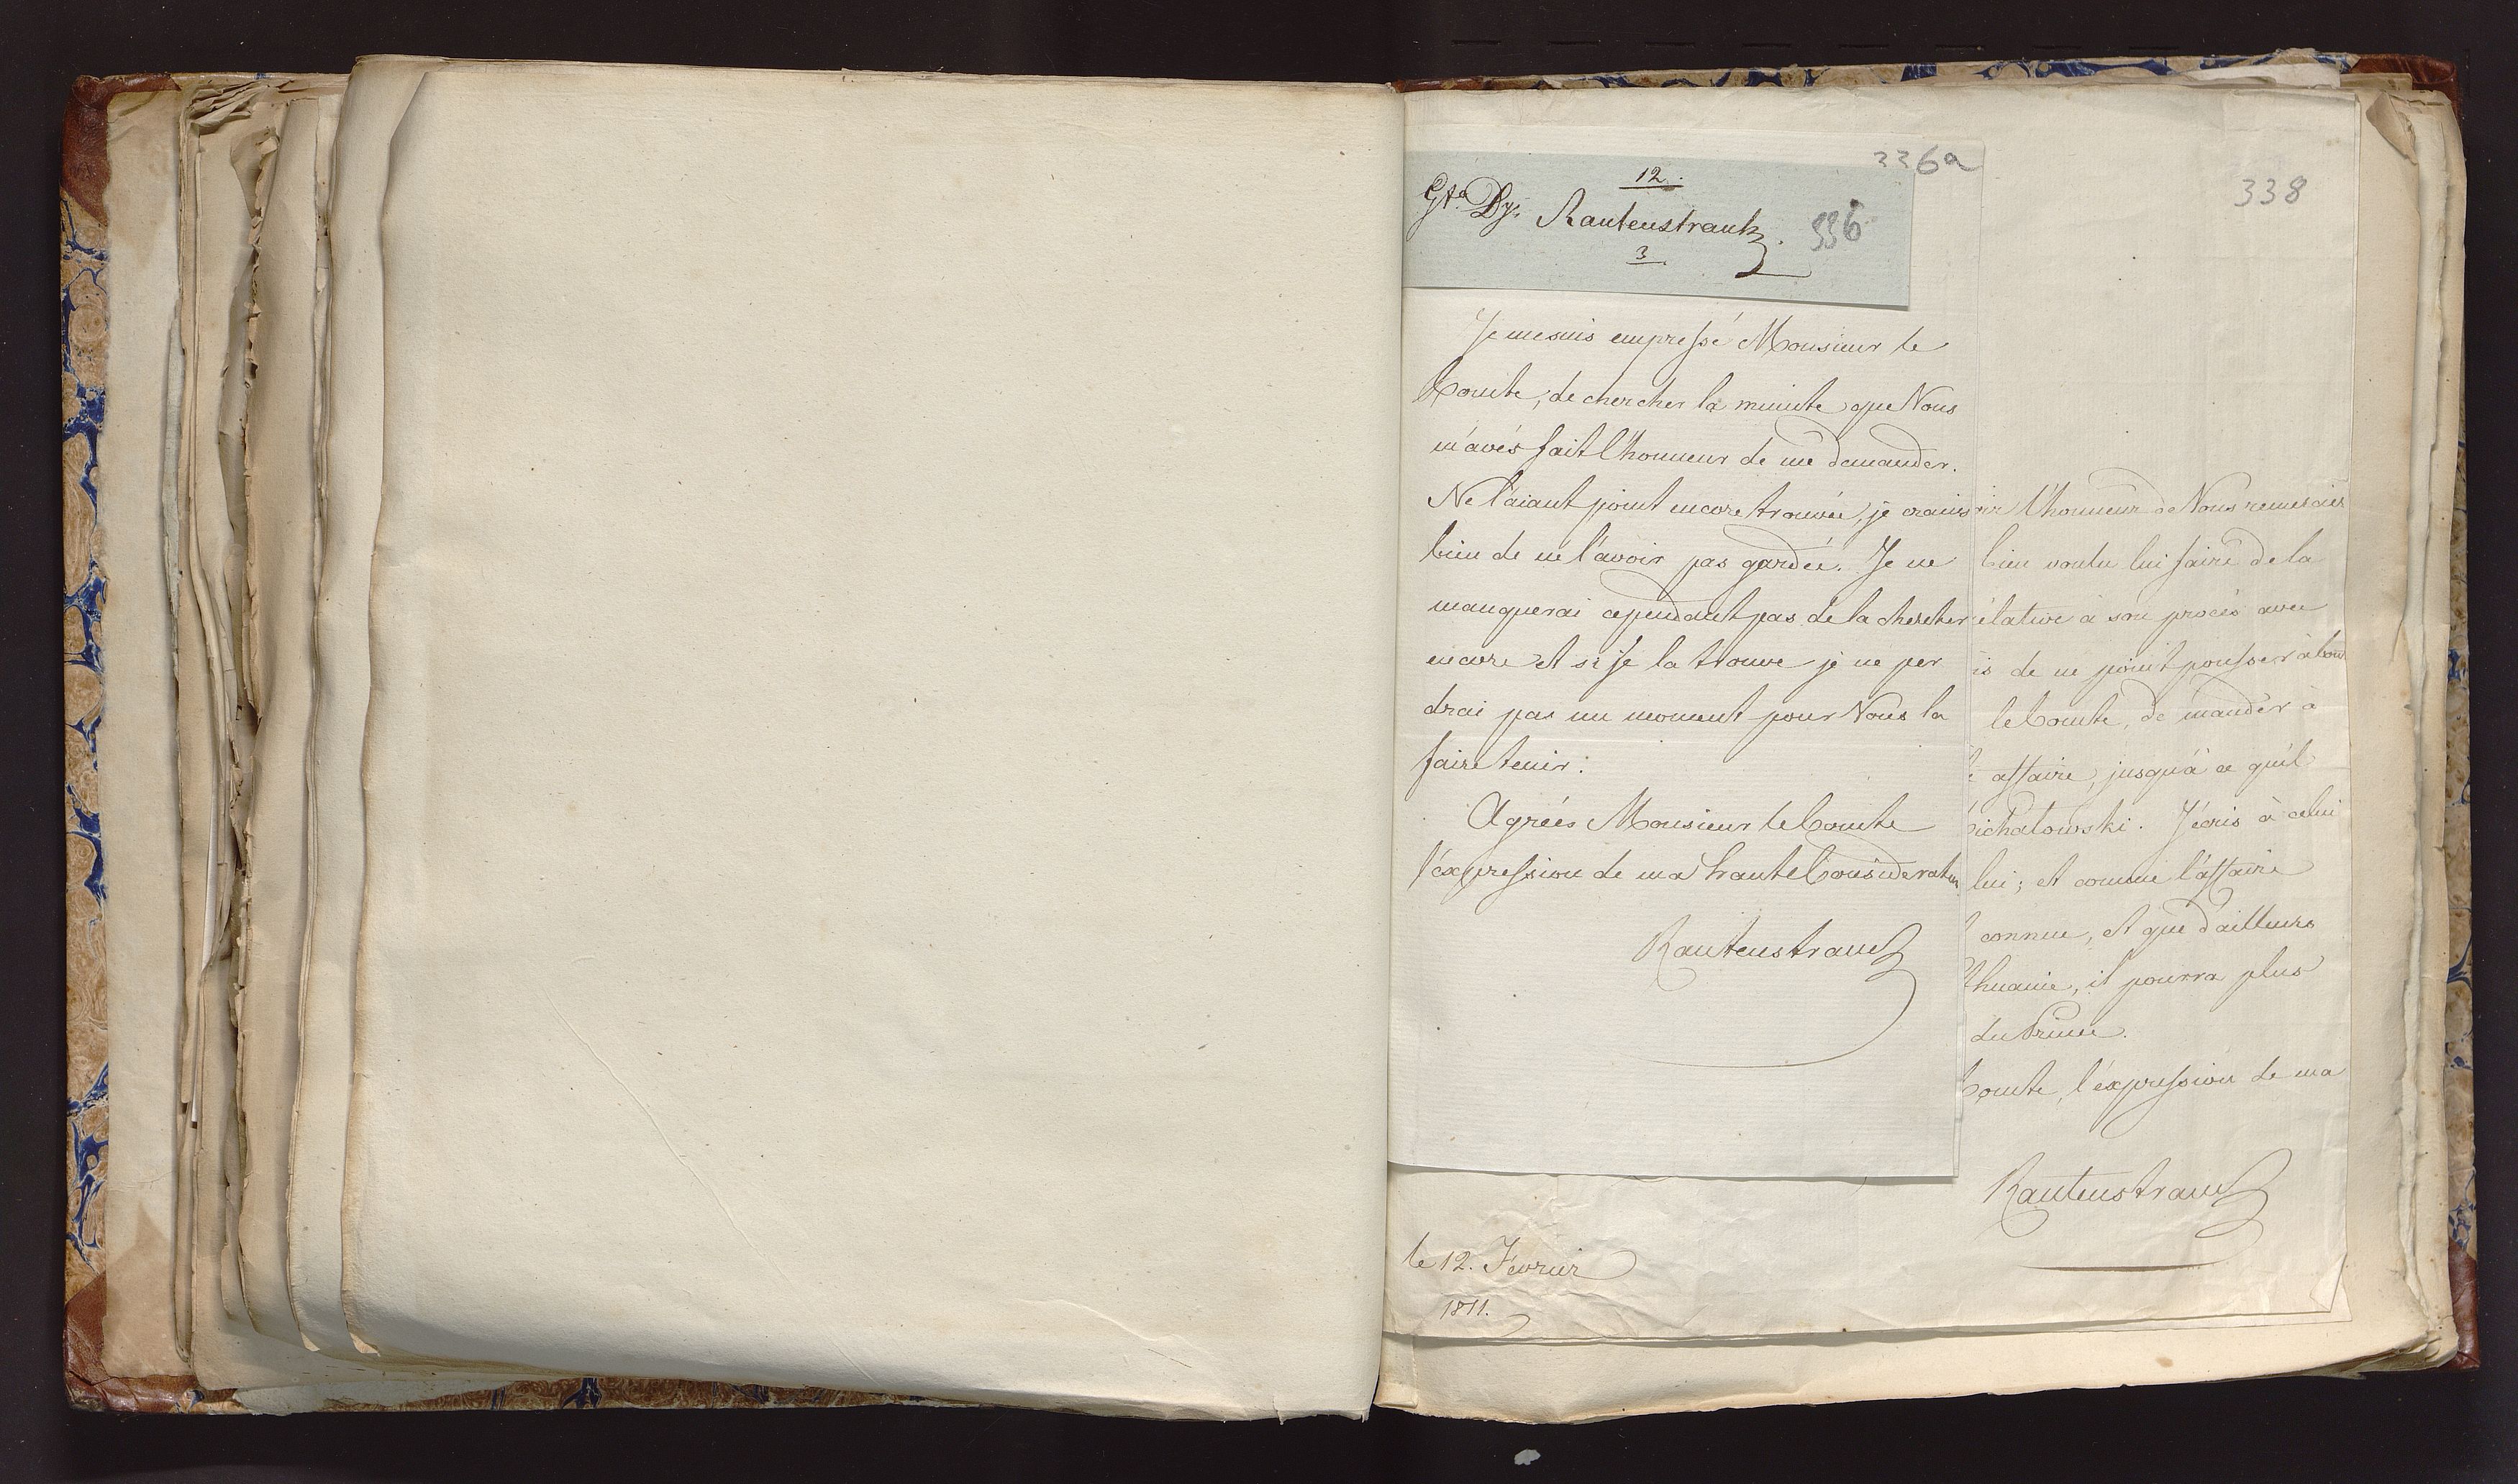 336a
12.
Gł. Dy. Rautenstrauch
336
3
Je me suis empressé Monsieur le
Comte, de chercher la minute que Vous
m'avés fait l'honneur de me demander.
Ne l'aiant point encore trouvée, je crains
bien de ne l'avoir pas gardée. Je ne
manquerai cependant pas de la chercher
encore et si Je la trouve je ne per
drai pas un moment pour Vous la
faire tenir.
Agréés Monsieur le Comte
l'éxpression de ma haute Consideration
Rautenstrauch
338
oir l'honneur de Vous remercier
bien voulu lui faire de la
élative à son procès avec
is de ne point pousser à bout
le Comte, de mander à
affaire, jusqu'à ce qu'il
ichalowski. J'écris à celui
lui; et comme l'affaire
connue, et que d'ailleurs
thuanie, il pourra plus
du Prince.
Comte, l'éxpression de ma
Rautenstrauch
le 12. Fevrier
1811.